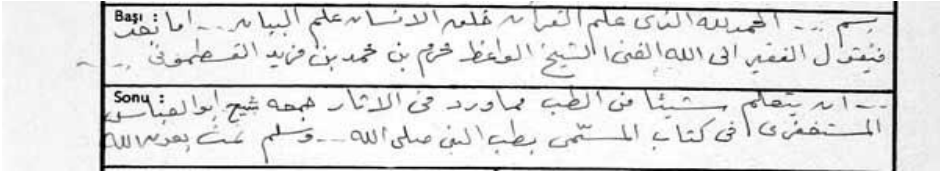 Başı : بسم ... الحمد لله الذى علم القرآن خلق الانسان علم البيان ... اما بعد
فيقول الفقير الى الله الغنى الشيخ الواعظ خرم بن محمد بن مزيد القسطمونى ...
Sonu : ... ان يتعلم شيئا من الطب مما ورد فى الاثار جمعه شيخ ابو العباس
المستغفرى فى كتاب المسمّى بطب النبى صلى الله ... وسلم تمت بعون الله